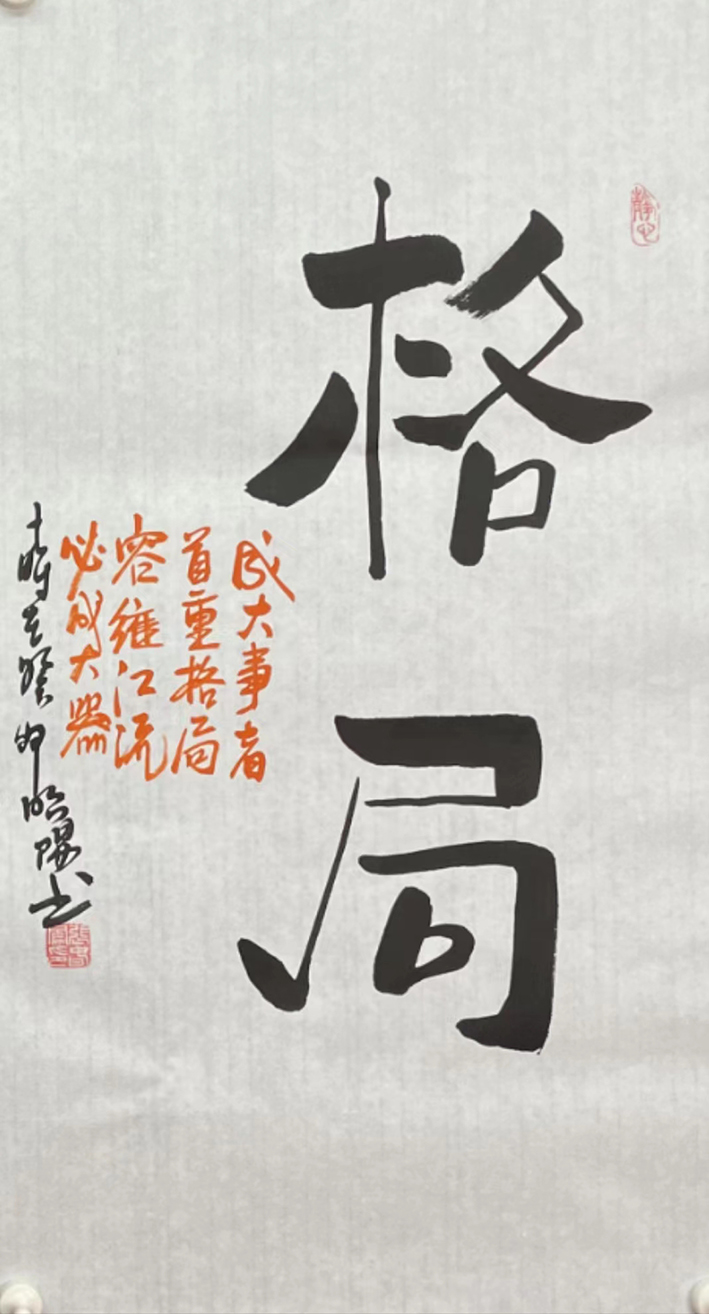 静心
格局
成大事者
首重格局
容维江流
必成大器
时在癸卯昭阳书